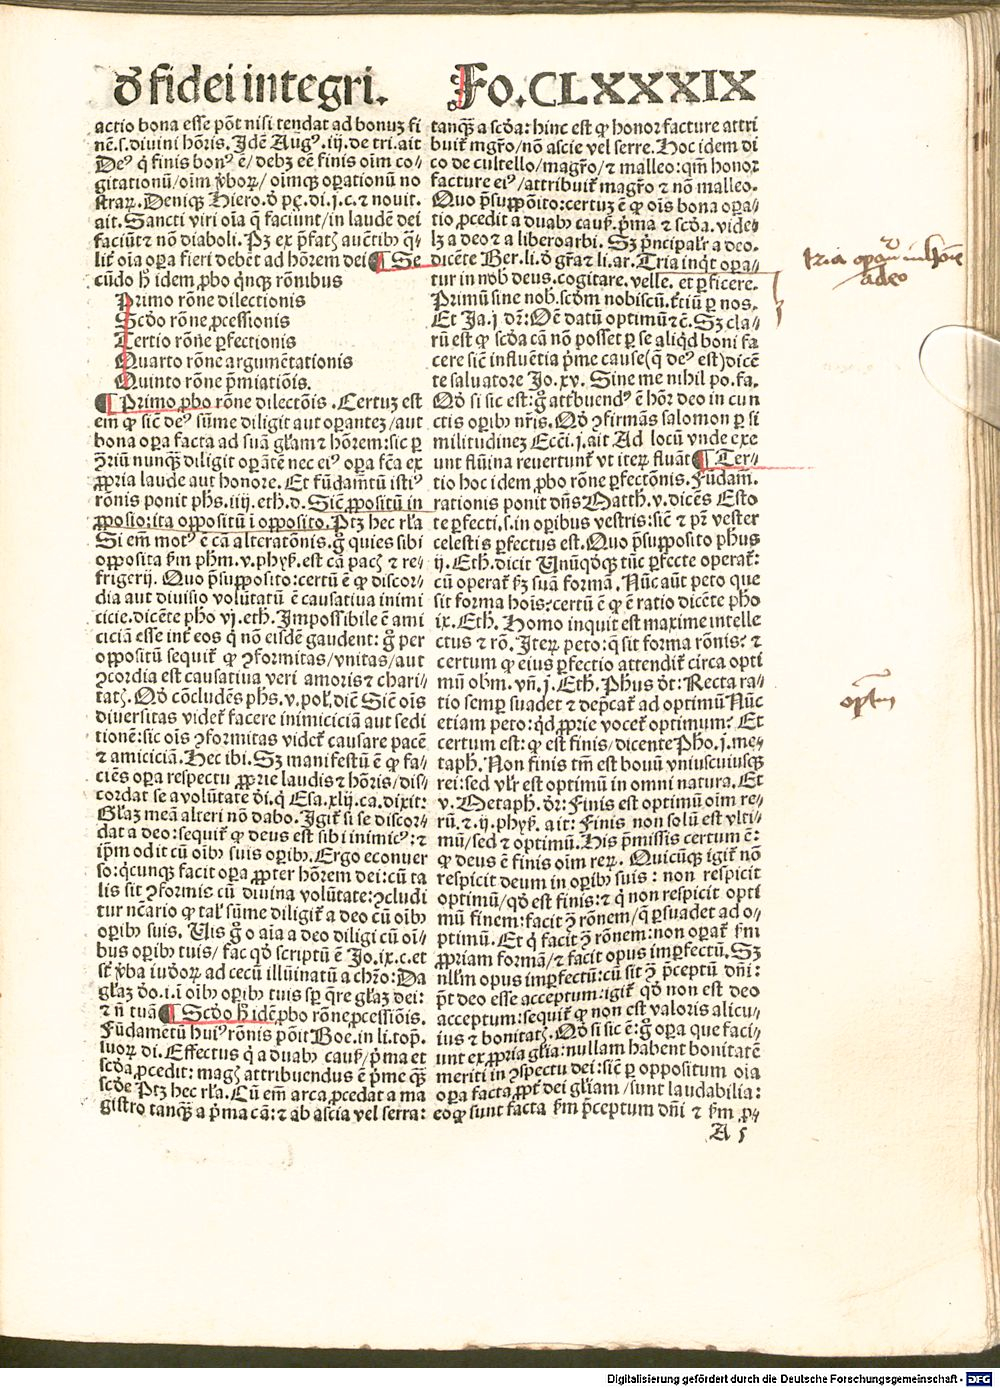 ꝺ fidei integri. Fo. CLXXXIX
actio bona esse põt nisi tendat ad bonuz fi
nẽ.s.divini hõris. Idẽ Augꝰ.iij.de tri.ait
Deꝰ q̃ finis bonꝰ ẽ/debz eẽ finis oĩm co⸗
gitationũ/oĩm ṽboꝝ/oĩmqꝫ oꝑationũ no
straꝝ. Deniqꝫ Hiero. .di.j.c. ⁊ novit.
ait. Sancti viri oĩa q̃ faciunt/in laudẽ dei
faciũt ⁊ nõ diaboli. Pꝫ ex p̃fatꝭ auctẽtibꝰ q̃⸗
lit̃ oĩa oꝑa fieri debẽt ad hõrem dei ¶ Se
cũdo h̃ idem ꝓbo q̃nqꝫ rõnibus
Primo rõne dilectionis
Scd̃o rõne ꝓcessionis
Tertio rõne ꝑfectionis
Quarto rõne argumẽtationis
Quinto rõne p̃miatiõis.
¶ Primo ꝓbo rõne dilectõnis. Certuꝫ est
em̃ ꝙ sic̃ deꝰ sũme diligit aut oꝑantez/aut
bona oꝑa facta ad suã gl̃am ⁊ hõrem: sic ꝑ
ꝯriũ nunqꝫ̃ diligit oꝑãtẽ nec eiꝰ oꝑa fc̃a ex
ꝓpria laude aut honore. Et fũdam̃tũ istiꝰ
rõnis ponit ph̃s.iiij.eth.d. Sic̃ ꝓpositũ in
ꝓposito: ita oppositũ ĩ opposito. Ptꝫ hec rl̃a
Si em̃ motꝰ ẽ cã alteratõnis. g̃ quies sibi
opposita ẞm ph̃m.v.phyẞ.est cã pacꝭ ⁊ re⸗
frigerij. Quo p̃supposito: certũ ẽ ꝙ discor⸗
dia aut divisio volũtatũ ẽ causativa inimi
cicie. dicẽte ph̃o vj.eth. Impossibile ẽ ami
ciciã esse int̃ eos q̃ nõ eisdẽ gaudent: g̃ per
oppositũ sequit̃ ꝙ ꝯformitas/vnitas/aut
ꝯcordia est causativa veri amoris ⁊ chari⸗
tatꝭ. Qd̃ cõcludẽs ph̃s.v.pol̃.dic̃ Sic̃ oĩs
diuersitas videt̃ facere inimiciciã aut sedi
tionẽ: sic oĩs ꝯformitas videt̃ causare pacẽ
⁊ amiciciã. Hec ibi. Sꝫ manifestũ ẽ ꝙ fa⸗
ciẽs oꝑa respectu ꝓprie laudis ⁊ hõris/dis⸗
cordat se a volũtate d̃i. q̃ Esa.xlij.ca.dixit:
Gl̃az meã alteri nõ dabo. Igit̃ si se discor⸗
dat a deo: sequit̃ ꝙ deus est sibi inimicꝰ: ⁊
ip̃m odit cũ oĩbꝰ suis oꝑibꝰ. Ergo econuer
so: q̃cunqꝫ facit oꝑa ꝓpter hõrem dei: cũ ta
lis sit ꝯformis cũ divina volũtate: ꝯcludi
tur nc̃ario ꝙ tal̃ sũme diligit̃ a deo cũ oĩbꝰ
oꝑibꝰ suis. Uis g̃ o aĩa a deo diligi cũ oĩ⸗
bus oꝑibꝰ tuis/fac qd̃ scriptũ ẽ Jo.ix.c. et
st̃ ṽba iud̃oꝝ ad cecũ illũinatũ a chr̃o: Da
gl̃az d̃o.i.ĩ oĩbꝰ oꝑibꝰ tuis sꝑ q̃re gl̃az dei:
⁊ ñ tuã ¶ Scd̃o h̃ idẽ ꝓbo rõne ꝓcessiõis.
Fũdamẽtũ huiꝰ rõnis põit Boe. in li. top̃.
 di. Effectus q̃ a duabꝰ cauẞ/p̃ma et
scd̃a, ꝓcedit: magꝭ attribuendus ẽ p̃me qꝫ̃
scd̃e Ptꝫ hec rl̃a. Cũ em̃ arca ꝓcedat a ma
gistro tanqꝫ̃ a p̃ma cã: ⁊ ab ascia vel serra:
tanqꝫ̃ a scd̃a: hinc est ꝙ honor facture attri
buit̃ mgr̃o/nõ ascie vel serre. Hoc idem di
co de cultello/magr̃o/⁊ malleo: qm̃ honor
facture eiꝰ/attribuit̃ magr̃o ⁊ nõ malleo.
Quo p̃supposito: certuz ẽ ꝙ oĩs bona oꝑa⸗
tio ꝓcedit a duabꝰ cauẞ. p̃ma ⁊ scd̃a. vide⸗
lꝫ a deo ⁊ a libero arbi. Sꝫ p̃ncipalr̃ a deo.
dicẽte Ber.li.d̃ gr̃a ⁊ li.ar. Tria inq̃t oꝑa⸗
tur in nob̃ deus. cogitare. velle. et ꝑficere.
Primũ sine nob̃. scd̃m nobiscũ. t̃tiũ ꝑ nos.
Et Ja.j dr̃: Om̃e datũ optimũ ⁊c̃. Sꝫ cla⸗
rũ est ꝙ scd̃a cã nõ posset ꝑ se aliq̃d boni fa
cere sic̃ influẽtia p̃me cause (q̃ deꝰ est) dicẽ
te saluatore Jo.xv. Sine me nihil po.fa.
Qd̃ si sic est: g̃ attribuendꝰ ẽ hõr deo in cun
ctis oꝑibꝰ nr̃is. Qd̃ ꝯfirmãs salomon ꝑ si
militudinez Ecc̃i.j.ait Ad locũ vnde exe
unt flũina reuertunt̃ vt iteꝝ fluãt ¶ Ter⸗
tio hoc idem ꝓbo rõne ꝑfectõnis. Fũdam̃.
rationis ponit dñs Matth.v.dicẽs Esto
te ꝑfecti.s.in oꝑibus vestris: sic̃ ⁊ pr̃ vester
celestis ꝑfectus est. Quo p̃supposito ph̃us
ij.Eth.dicit Unũqd̃qꝫ tũc ꝑfecte operat̃:
cũ operat̃ ẞꝫ suã formã. Nũc aũt peto que
sit forma hoĩs? certũ ẽ ꝙ ẽ ratio dicẽte ph̃o
ix.Eth. Homo inquit est maxime intelle
ctus ⁊ rõ. Iteꝝ peto: q̃ sit forma rõnis? ⁊
certum ꝙ eius ꝑfectio attendit̃ circa opti
mũ obm̃. vñ.j.Eth. Ph̃us d̃t: Recta ra⸗
tio semꝑ suadet ⁊ dep̃cat̃ ad optimũ Nũc
etiam peto: q̃d ꝓprie vocet̃ optimum? Et
certum est: ꝙ est finis/dicente Ph̃o.j.me⸗
taph. Non finis tm̃ est bouũ vniuscuiusqꝫ
rei: sed vl̃r est optimũ in omni natura. Et
v. Metaph. d̃r: Finis est optimũ oĩm re⸗
rũ. ⁊.ij.phyẞ. ait: Finis non solũ est vlti⸗
mũ/sed ⁊ optimũ. His p̃missis certum ẽ:
ꝙ deus ẽ finis oĩm reꝝ. Quicũqꝫ igit̃ nõ
respicit deum in oꝑibꝰ suis: non respicit
optimũ/qd̃ est finis: ⁊ q̃ non respicit opti
mũ finem: facit ꝯ̃ rõnem/q̃ ꝑsuadet ad o⸗
ptimũ. Et q̃ facit ꝯ̃ rõnem: non oꝑat̃ ẞm
ꝓpriam formã/⁊ facit opus imꝑfectũ. Sꝫ
nll̃m opus imꝑfectũ: cũ sit ꝯ̃ p̃ceptũ dñi:
p̃t deo esse acceptum: igit̃ qd̃ non est deo
acceptum: sequit̃ ꝙ non est valoris alicu⸗
ius ⁊ bonitatꝭ. Qd̃ si sic ẽ: g̃ oꝑa que faci⸗
unt ex ꝓpria gl̃ia: nullam habent bonitatẽ
meriti in ꝯspectu dei: sic̃ ꝑ oppositum oĩa
oꝑa facta ꝓpt̃ dei gl̃iam/sunt laudabilia:
eo ꝙ sunt facta ẞm p̃ceptum dñi ⁊ ẞm ꝓ⸗
A 5
tria
a deo
Digitalisierung gefördert durch die Deutsche Forschungsgemeinschaft - DFG